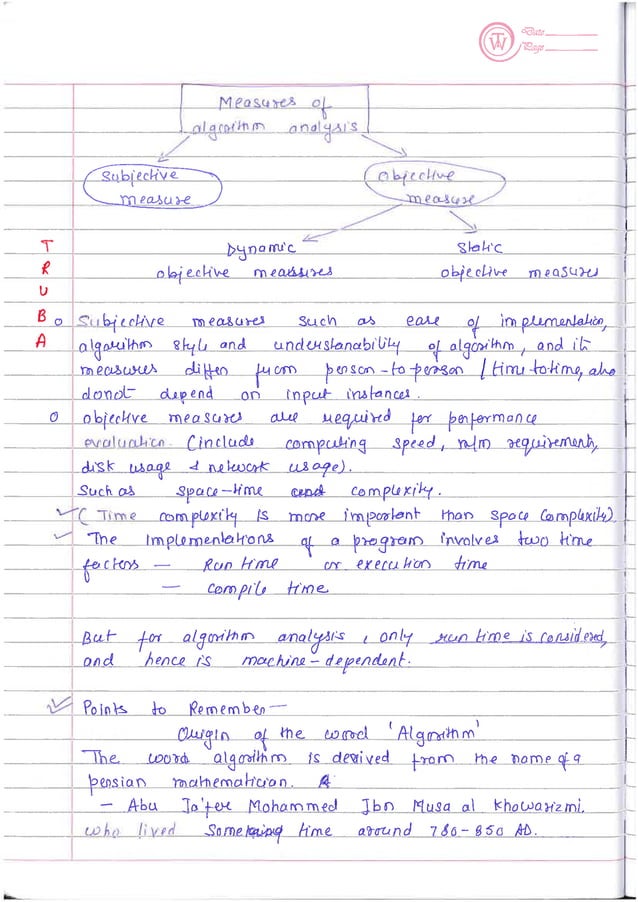 TW
Date
Page
Measures of
algorithm analysis
Subjective
measure
Objective
measure
Dynamic
objective measures
Static
objective measures
T
R
U
B
A
Subjective measures such as ease of implementation,
algorithm style and understanability of algorithm, and its
measures differ from person-to-person / time to time, also
donot depend on input instances.
objective measures are required for performance
evaluation. (include computing speed, m/m requirement,
disk usage & network usage).
Such as space-time complexity.
(Time complexity is more important than space complexity)
The implementations of a program involves two time
factors — Run time or execution time
— compile time
But for algorithm analysis, only run time is considered,
and hence is machine-dependent.
Points to Remember—
Origin of the word 'Algorithm'
The word algorithm is derived from the name of a
persian mathematician.
— Abu Ja'fer Mohammed Ibn Musa al Khowarizmi.
who lived time around 780-850 AD.